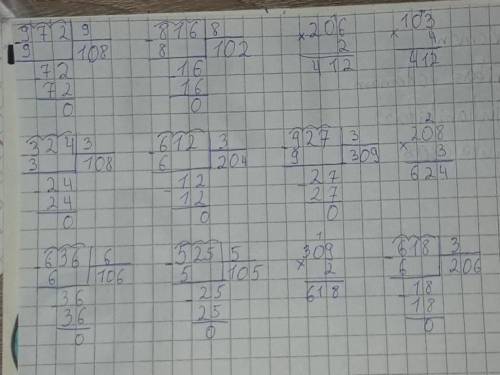 972 9 -816 8 ×206 ×103
9 108 8 102 2 4
72 -16 412 412
72 16
0 0
324 3 -612 3 -927 3 2
3 108 6 204 9 309 ×208
-24 -12 -27 3
24 12 27 624
0 0 0
-636 6 -525 5 1 -618 3
6 106 5 105 309 6 206
-36 -25 ×2 -18
36 25 618 18
0 0 0